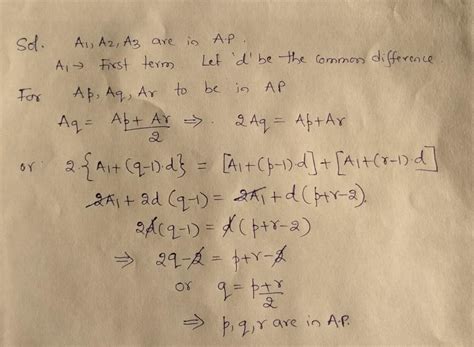 Sol. A₁, A₂, A₃ are in A.P.
A₁ → First term Let 'd' be the common difference
For Ap, Aq, Ar to be in AP
Aq = (Ap + Ar)/2 ⇒ 2Aq = Ap+Ar
or 2{A₁+(q-1)·d} = [A₁+(p-1)·d]+[A₁+(r-1)·d]
2A₁ + 2d(q-1) = 2A₁ + d(p+r-2)
2d(q-1) = d(p+r-2)
⇒ 2q-2 = p+r-2
or q = (p+r)/2
⇒ p, q, r are in A.P.